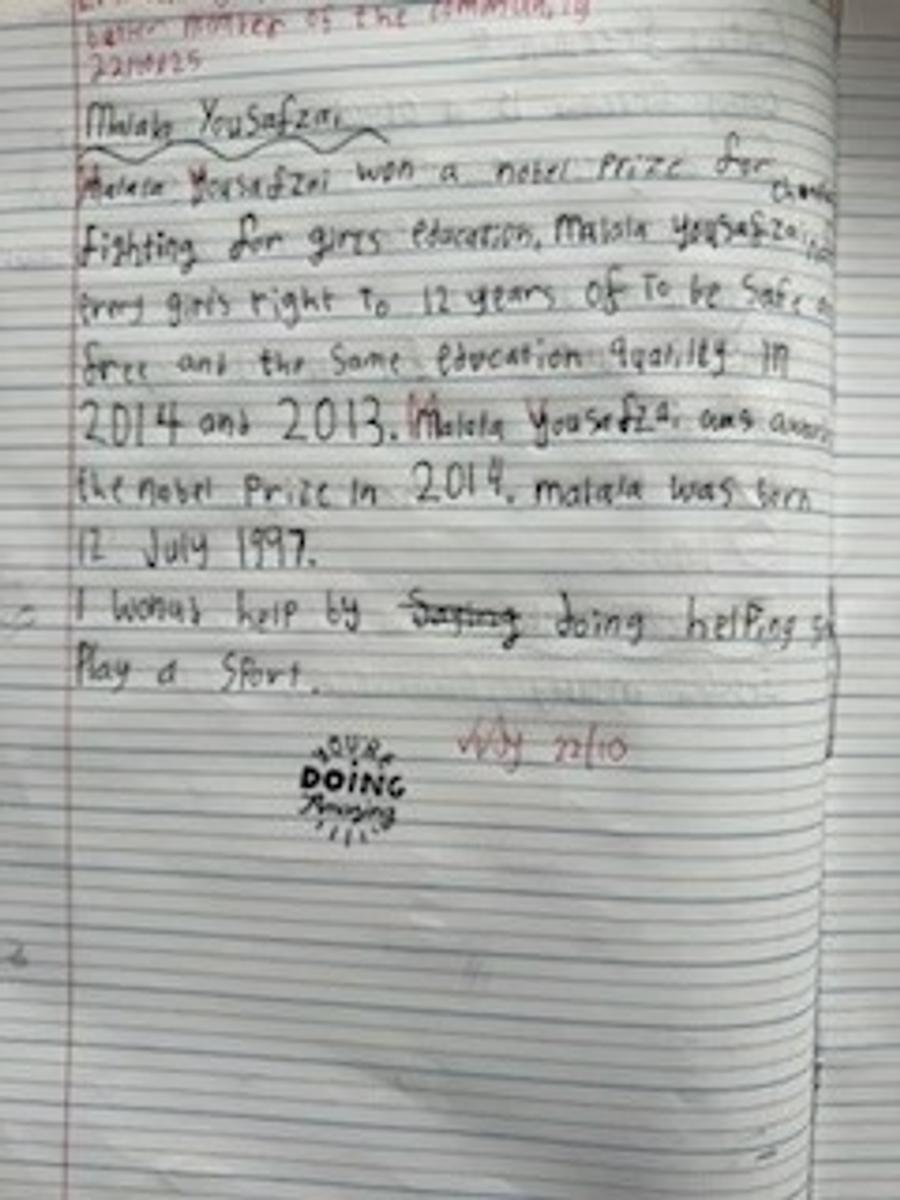 better member of the community
22/10/25
Malala Yousafzai
Malala Yousafzai won a nobel Prize for
fighting for girls education. Malala yousafzai
Every girls right To 12 years of To be Safe
free and the Same education quality in
2014 and 2013. Malala Yousafzai was
the nobel Prize In 2014. malala was born
12 July 1997.
I help by Saying doing helping
Play a Sport.
YOU'RE
DOING
Amazing
22/10